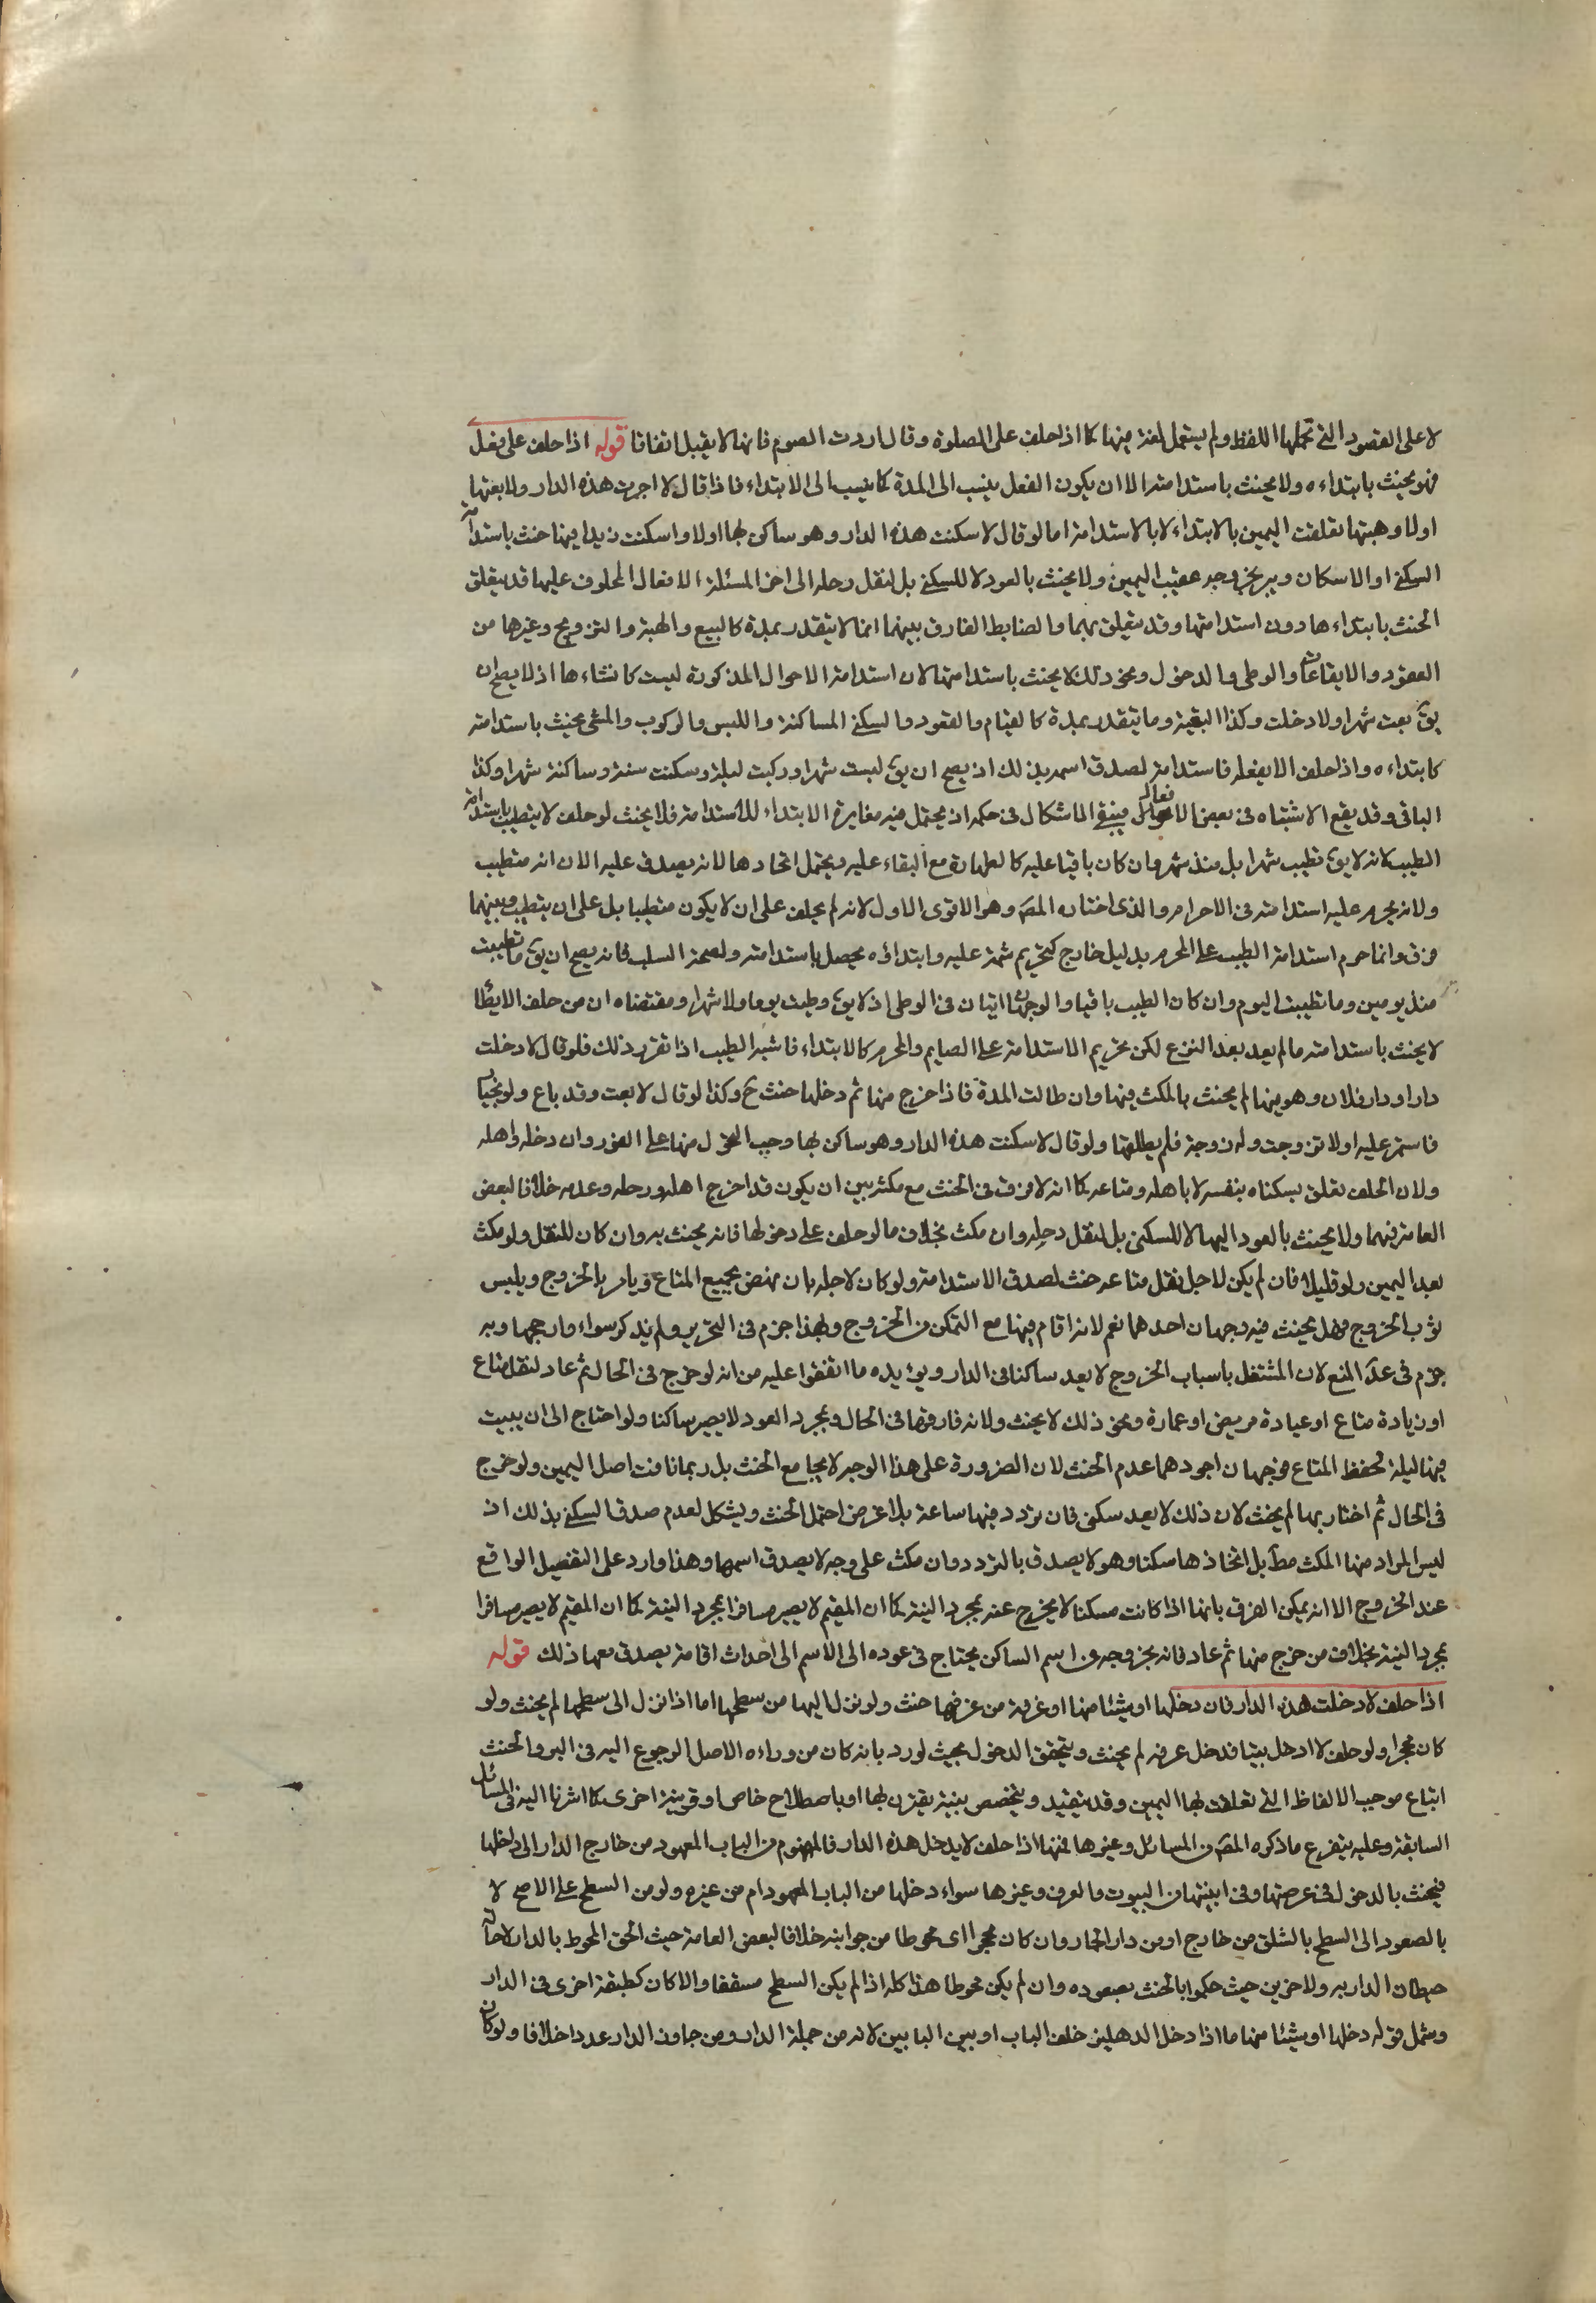 لا على القصود التي تحملها اللفظ ولم يستعمل لغة فيها كما اذا حلف على الصلوة وقال اردت الصوم فانها لا يقبل اتفاقا قوله اذا حلف على فعل
فهو يحنث بابتداءه ولا يحنث باستدامته الا ان يكون الفعل ينسب الى المدة كما ينسب الى الابتداء فاذا قال لا اجرت هذه الدار ولا بعتها
اولا وهبتها تعلقت اليمين بالابتداء لا بالاستدامة اما لو قال لا سكنت هذه الدار وهو ساكن بها اولا واسكنت زيدا فيها حنث باستدامة
السكنى او الاسكان ويبر بخروجه عقيب اليمين ولا يحنث بالعود لا للسكنى بل لنقل رحله الى اخر المسئلة الافعال المحلوف عليها قد يتعلق
الحنث بابتداءها دون استدامتها وقد يتعلق بهما والضابط الفارق بينهما انما لا يتقدر بمدة كالبيع والهبة والتزويج وغيرها من
العقود والايقاعات والوطى والدخول ونحو ذلك لا يحنث باستدامتها لان استدامة الاحوال المذكورة ليست كانشاءها اذ لا يصح ان
يق بعت شهرا ولا دخلت وكذا البقية وما يتقدر بمدة كالقيام والقعود والسكنى المساكنة واللبس والركوب والمشي يحنث باستدامته
كابتداءه واذا حلف الا يفعله فاستدامة لصدق اسمه بذلك اذ يصح ان يق لبست شهرا وركبت ليلة وسكنت سنة وساكنة شهرا وكذا
الباقي وقد يقع الاشتباه في بعض الافعال فينبغي الاشكال في حكمه اذ يحتمل فيه مغايرة الابتداء للاستدامة فلا يحنث لو حلف لا يتطيب باستدامة
الطيب لانه لا يق تطيب شهرا بل منذ شهر وان كان باقيا عليه كالطهارة مع البقاء عليه ويحتمل اتحادها لانه يصدق عليه الان انه متطيب
ولانه يحرم عليه استدامته في الاحرام والذي اختاره المص وهو الاقوى الاول لانه لم يحلف على ان لا يكون متطيبا بل على ان يتطيب وبينهما
فرق وانما حرم استدامة الطيب على المحرم بدليل خارج كتحريم شمه عليه وابتداؤه يحصل باستدامته ولصحة السلب فانه يصح ان يق ما تطيبت
منذ يومين وما تطيبت اليوم وان كان الطيب باقيا والوجهان اتيان في الوطى اذ لا يق وطيت يوما ولا شهرا ومقتضاه ان من حلف الا يطأ
لا يحنث باستدامته ما لم يعد بعد النزع لكن تحريم الاستدامة على الصايم والمحرم كالابتداء فاشبه الطيب اذا تقرر ذلك فلو قال لا دخلت
دارا او دار فلان وهو فيها لم يحنث بالمكث فيها وان طالت المدة فاذا خرج منها ثم دخلها حنث ح وكذا لو قال لا بعت وقد باع ولو بخيار
فاستمر عليه او لا تزوجت وله زوجة فلم يطلقها ولو قال لا سكنت هذه الدار وهو ساكن بها وجب التحول منها على الفور وان دخله واهله
ولان الحلف تعلق بسكناه بنفسه لا باهله ومتاعه كما انه لا فرق في الحنث مع مكثه بين ان يكون قد اخرج اهله ورحله وعدمه خلافا لبعض
العامة فيهما ولا يحنث بالعود اليها لا للسكنى بل لنقل رحله وان مكث بخلاف ما لو حلف على دخولها فانه يحنث به وان كان للنقل ولو مكث
بعد اليمين ولو قليلا فان لم يكن لاجل نقل متاعه حنث لصدق الاستدامة ولو كان لاجله بان نهض بجميع المتاع ويامر بالخروج ويلبس
ثوب الخروج فهل يحنث فيه وجهان احدهما نعم لانه اقام فيها مع التمكن من الخروج وبهذا جزم في التحرير ولم يذكر سواه وارجحهما وبه
جزم في عد المنع لان المشتغل باسباب الخروج لا يعد ساكنا في الدار ويؤيده ما اتفقوا عليه من انه لو خرج في الحال ثم عاد لنقل متاع
او زيادة متاع او عيادة مريض او عمارة ونحو ذلك لا يحنث ولانه فارقها في الحال وبمجرد العود لا يصير ساكنا ولو احتاج الى ان يبيت
فيها ليلة لحفظ المتاع فوجهان اجودهما عدم الحنث لان الضرورة على هذا الوجه لا يجامع الحنث بل ربما نافت اصل اليمين ولو خرج
في الحال ثم اجتاز بها لم يحنث لان ذلك لا يعد سكنى فان تردد فيها ساعة بلا غرض احتمل الحنث ويشكل لعدم صدق السكنى بذلك اذ
ليس المراد منها المكث مط بل اتخاذها سكنا وهو لا يصدق بالتردد وان مكث على وجه لا يصدق اسمها وهذا وارد على التفصيل الواقع
عند الخروج الا انه يمكن الفرق بانها اذا كانت مسكنا لا يخرج عنه بمجرد النية كما ان المقيم لا يصير مسافرا بمجرد النية كما ان المقيم لا يصير مسافرا
بمجرد النية بخلاف من خرج منها ثم عاد فانه بخروجه من اسم الساكن يحتاج في عوده الى الاسم الى احداث اقامة يصدق معها ذلك قوله
اذا حلف لا دخلت هذه الدار فان دخلها او شيئا منها او غرفة من غرفها حنث ولو نزل اليها من سطحها اما اذا نزل الى سطحها لم يحنث ولو
كان محجرا ولو حلف لا ادخل بيتا فدخل غرفة لم يحنث ويتحقق الدخول بحيث لو رد بابه كان من وراءه الاصل الرجوع اليه في البر والحنث
اتباع موجب الالفاظ التي تعلقت بها اليمين وقد يتقيد ويتخصص بنية يقترن بها او باصطلاح خاص او قرينة اخرى كما اشرنا اليه في المسائل
السابقة وعليه يتفرع ما ذكره المص من المسائل وغيرها فمنها اذا حلف لا يدخل هذه الدار فالمفهوم من الباب المعهود من خارج الدار الى داخلها
فيحنث بالدخول في عرصتها وفي ابنيتها من البيوت والغرف وغيرها سواء دخلها من الباب المعهود ام من غيره ولو من السطح على الاصح لا
بالصعود الى السطح بالتسلق من خارج او من دار الجار وان كان محجرا اى محوطا من جوانبه خلافا لبعض العامة حيث الحق المحوط بالدار لاحاطة
حيطان الدار به ولاخرين حيث حكموا بالحنث بصعوده وان لم يكن محوطا هذا كله اذا لم يكن السطح مسقفا والا كان كطبقة اخرى في الدار
وشمل قوله دخلها او شيئا منها ما اذا دخل الدهليز خلف الباب او بين البابين لانه من جملة الدار ومن جاوز الدار عد داخلا فا ولو كان